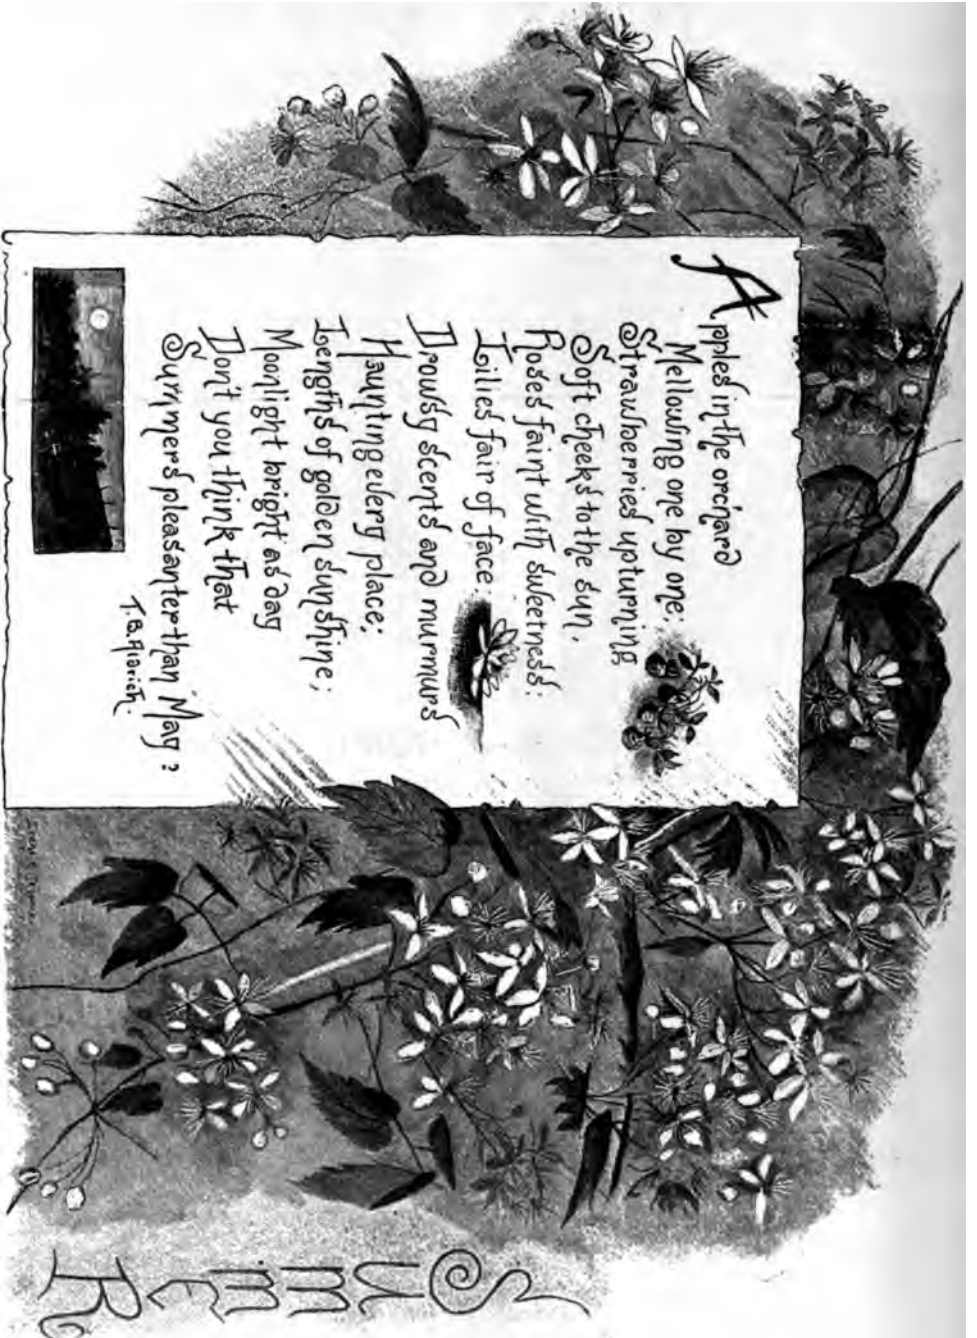 Apples in the orchard
Mellowing one by one;
Strawberries upturning
Soft cheeks to the sun,
Roses faint with sweetness:
Lilies fair of face:
Drowsy scents and murmurs
Haunting every place;
Lengths of golden sunshine;
Moonlight bright as day
Don't you think that
Summers pleasanter than May?
T. B. Aldrich.
SUMMER